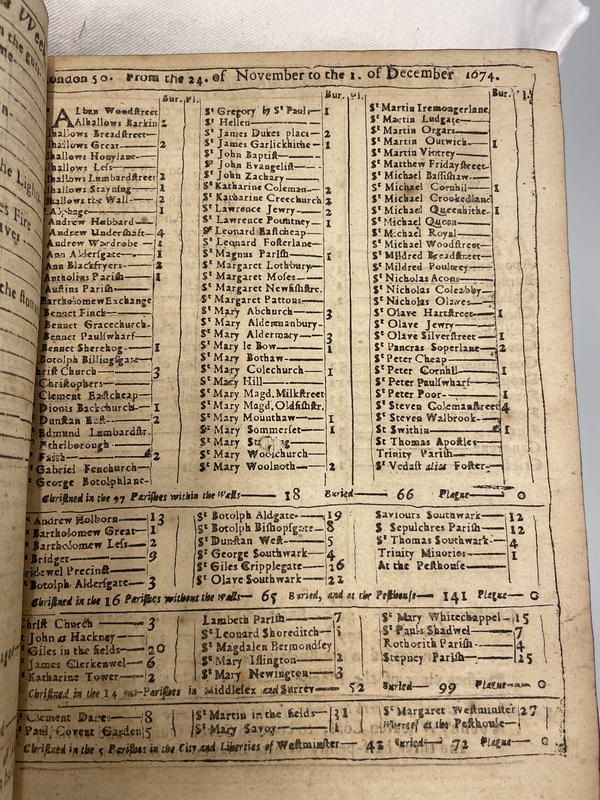 London 50. From the 24. of November to the 1. of December 1674.
Bur. Pl.
Alban Woodstreet
Alhallows Barkin 2
hallows Breadstreet
hallows Great 2
hallows Honylane
hallows Less
hallows Lumbardstreet 2
hallows Stayning 1
hallows the Wall 2
Alphage 1
Andrew Hubbard
Andrew Undershaft 4
Andrew Wardrobe 1
Ann Aldersgate 1
Ann Blackfryers 2
Antholins Parish 1
Austins Parish
Bartholomew Exchange
Bennet Finch
Bennet Gracechurch
Bennet Paulswharf
Bennet Sherehog 1
Botolph Billingsgate
hrist Church 3
Christophers
Clement Eastcheap
Dionis Backchurch 1
Dunstan East 2
Edmund Lumbardstr.
Ethelborough
Faith 2
Gabriel Fenchurch
George Botolphlane
Bur. Pl.
St Gregory by St Pauls 1
St Hellen
St James Dukes place 2
St James Garlickhithe 1
St John Baptist
St John Evangelist
St John Zachary
St Katharine Coleman 2
St Katharine Creechurch 2
St Lawrence Jewry 2
St Lawrence Pountney 1
St Leonard Eastcheap
St Leonard Fosterlane
St Magnus Parish 1
St Margaret Lothbury
St Margaret Moses
St Margaret Newfishstre.
St Margaret Pattons
St Mary Abchurch 3
St Mary Aldermanbury
St Mary Aldermary 3
St Mary le Bow 1
St Mary Bothaw
St Mary Colechurch 1
St Mary Hill
St Mary Magd. Milkstreet
St Mary Magd. Oldfishstr.
St Mary Mounthaw 1
St Mary Sommerset 1
St Mary
St Mary Woolchurch
St Mary Woolnoth 2
Bur. Pl.
St Martin Iremongerlane
St Martin Ludgate
St Martin Orgars
St Martin Outwich 1
St Martin Vintrey
St Matthew Fridaystreet
St Michael Bassishaw
St Michael Cornhil 1
St Michael Crookedlane
St Michael Queenhithe 1
St Michael Quern
St Michael Royal
St Michael Woodstreet
St Mildred Breadstreet
St Mildred Poultrey
St Nicholas Acons
St Nicholas Coleabby
St Nicholas Olaves
St Olave Hartstreet 1
St Olave Jewry
St Olave Silverstreet 1
St Pancras Soperlane 2
St Peter Cheap
St Peter Cornhil 1
St Peter Paulswharf
St Peter Poor 1
St Steven Colemanstreet 4
St Steven Walbrook
St Swithin 1
St Thomas Apostles
Trinity Parish
St Vedast alias Foster
Christned in the 97 Parishes within the Walls 18 Buried 66 Plague 0
Andrew Holborn 13
Bartholomew Great 1
Bartholomew Less 2
Bridget 9
ridewel Precinct
Botolph Aldersgate 3
St Botolph Aldgate 19
St Botolph Bishopsgate 8
St Dunstan West 5
St George Southwark 4
St Giles Cripplegate 26
St Olave Southwark 22
Saviours Southwark 12
S Sepulchres Parish 12
St Thomas Southwark 4
Trinity Minories 1
At the Pesthouse
Christned in the 16 Parishes without the Walls 65 Buried, and at the Pesthouse 141 Plague 0
Christ Church 3
John at Hackney
Giles in the fields 20
James Clerkenwel 6
Katharine Tower 2
Lambeth Parish 7
St Leonard Shoreditch
St Magdalen Bermondsey
St Mary Islington 2
St Mary Newington 3
St Mary Whitechappel 15
St Pauls Shadwel 7
Rothorith Parish 4
Stepney Parish 25
Christned in the 14 out-Parishes in Middlesex and Surrey 52 Buried 99 Plague 0
Clement Danes 8
Paul Covent Garden 5
St Martin in the fields 31
St Mary Savoy 1
St Margaret Westminster 27
Whereof at the Pesthouse
Christned in the 5 Parishes in the City and Liberties of Westminster 43 Buried 72 Plague 0